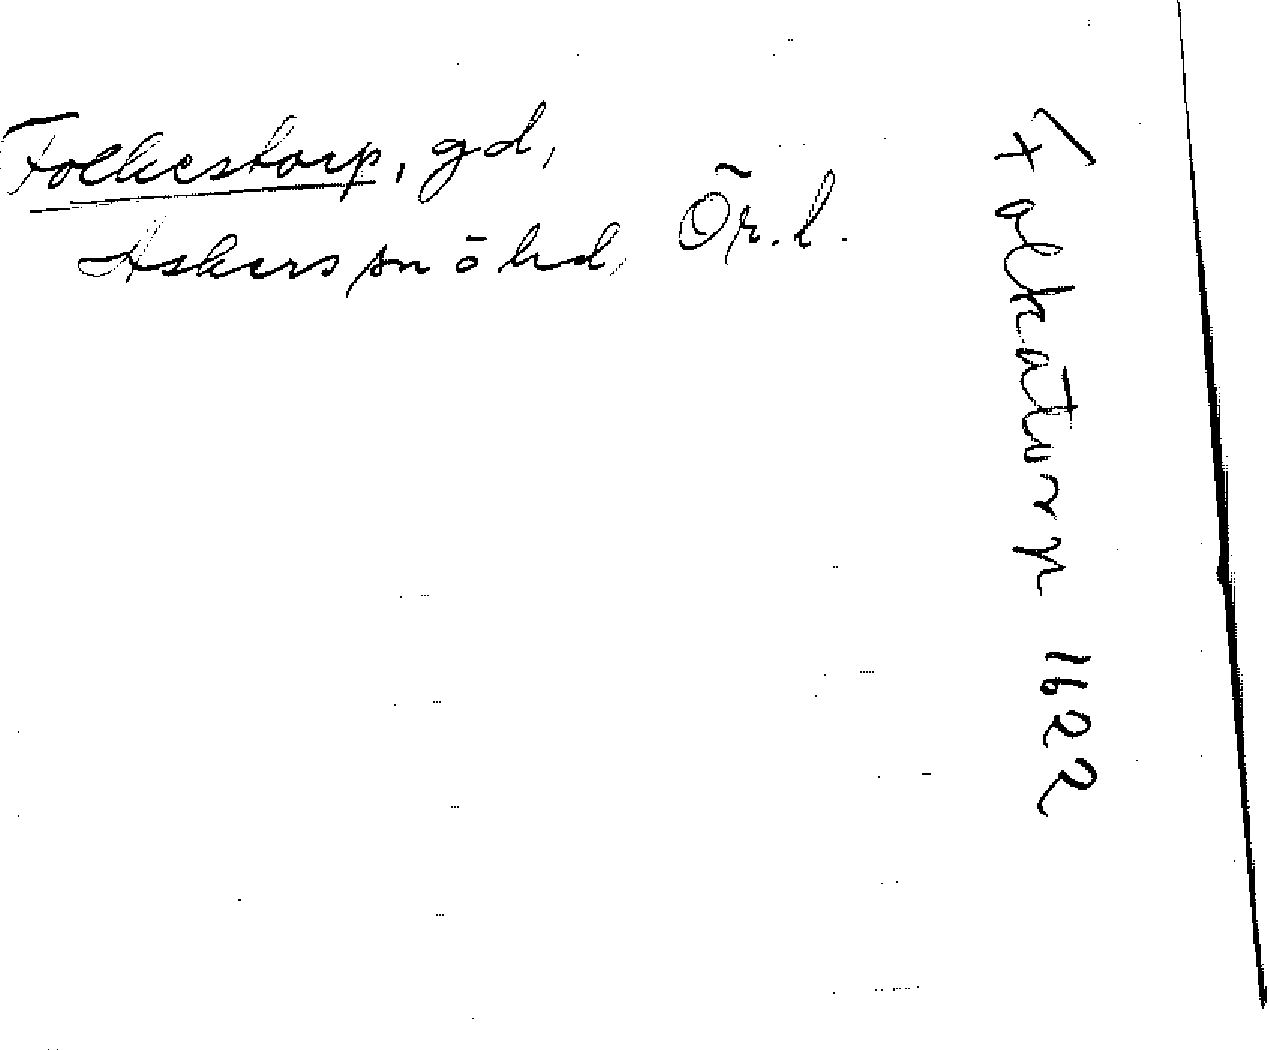 Folkestorp, gd,
Askers sn ö hd, Ör. l.
Folkaturp 1622